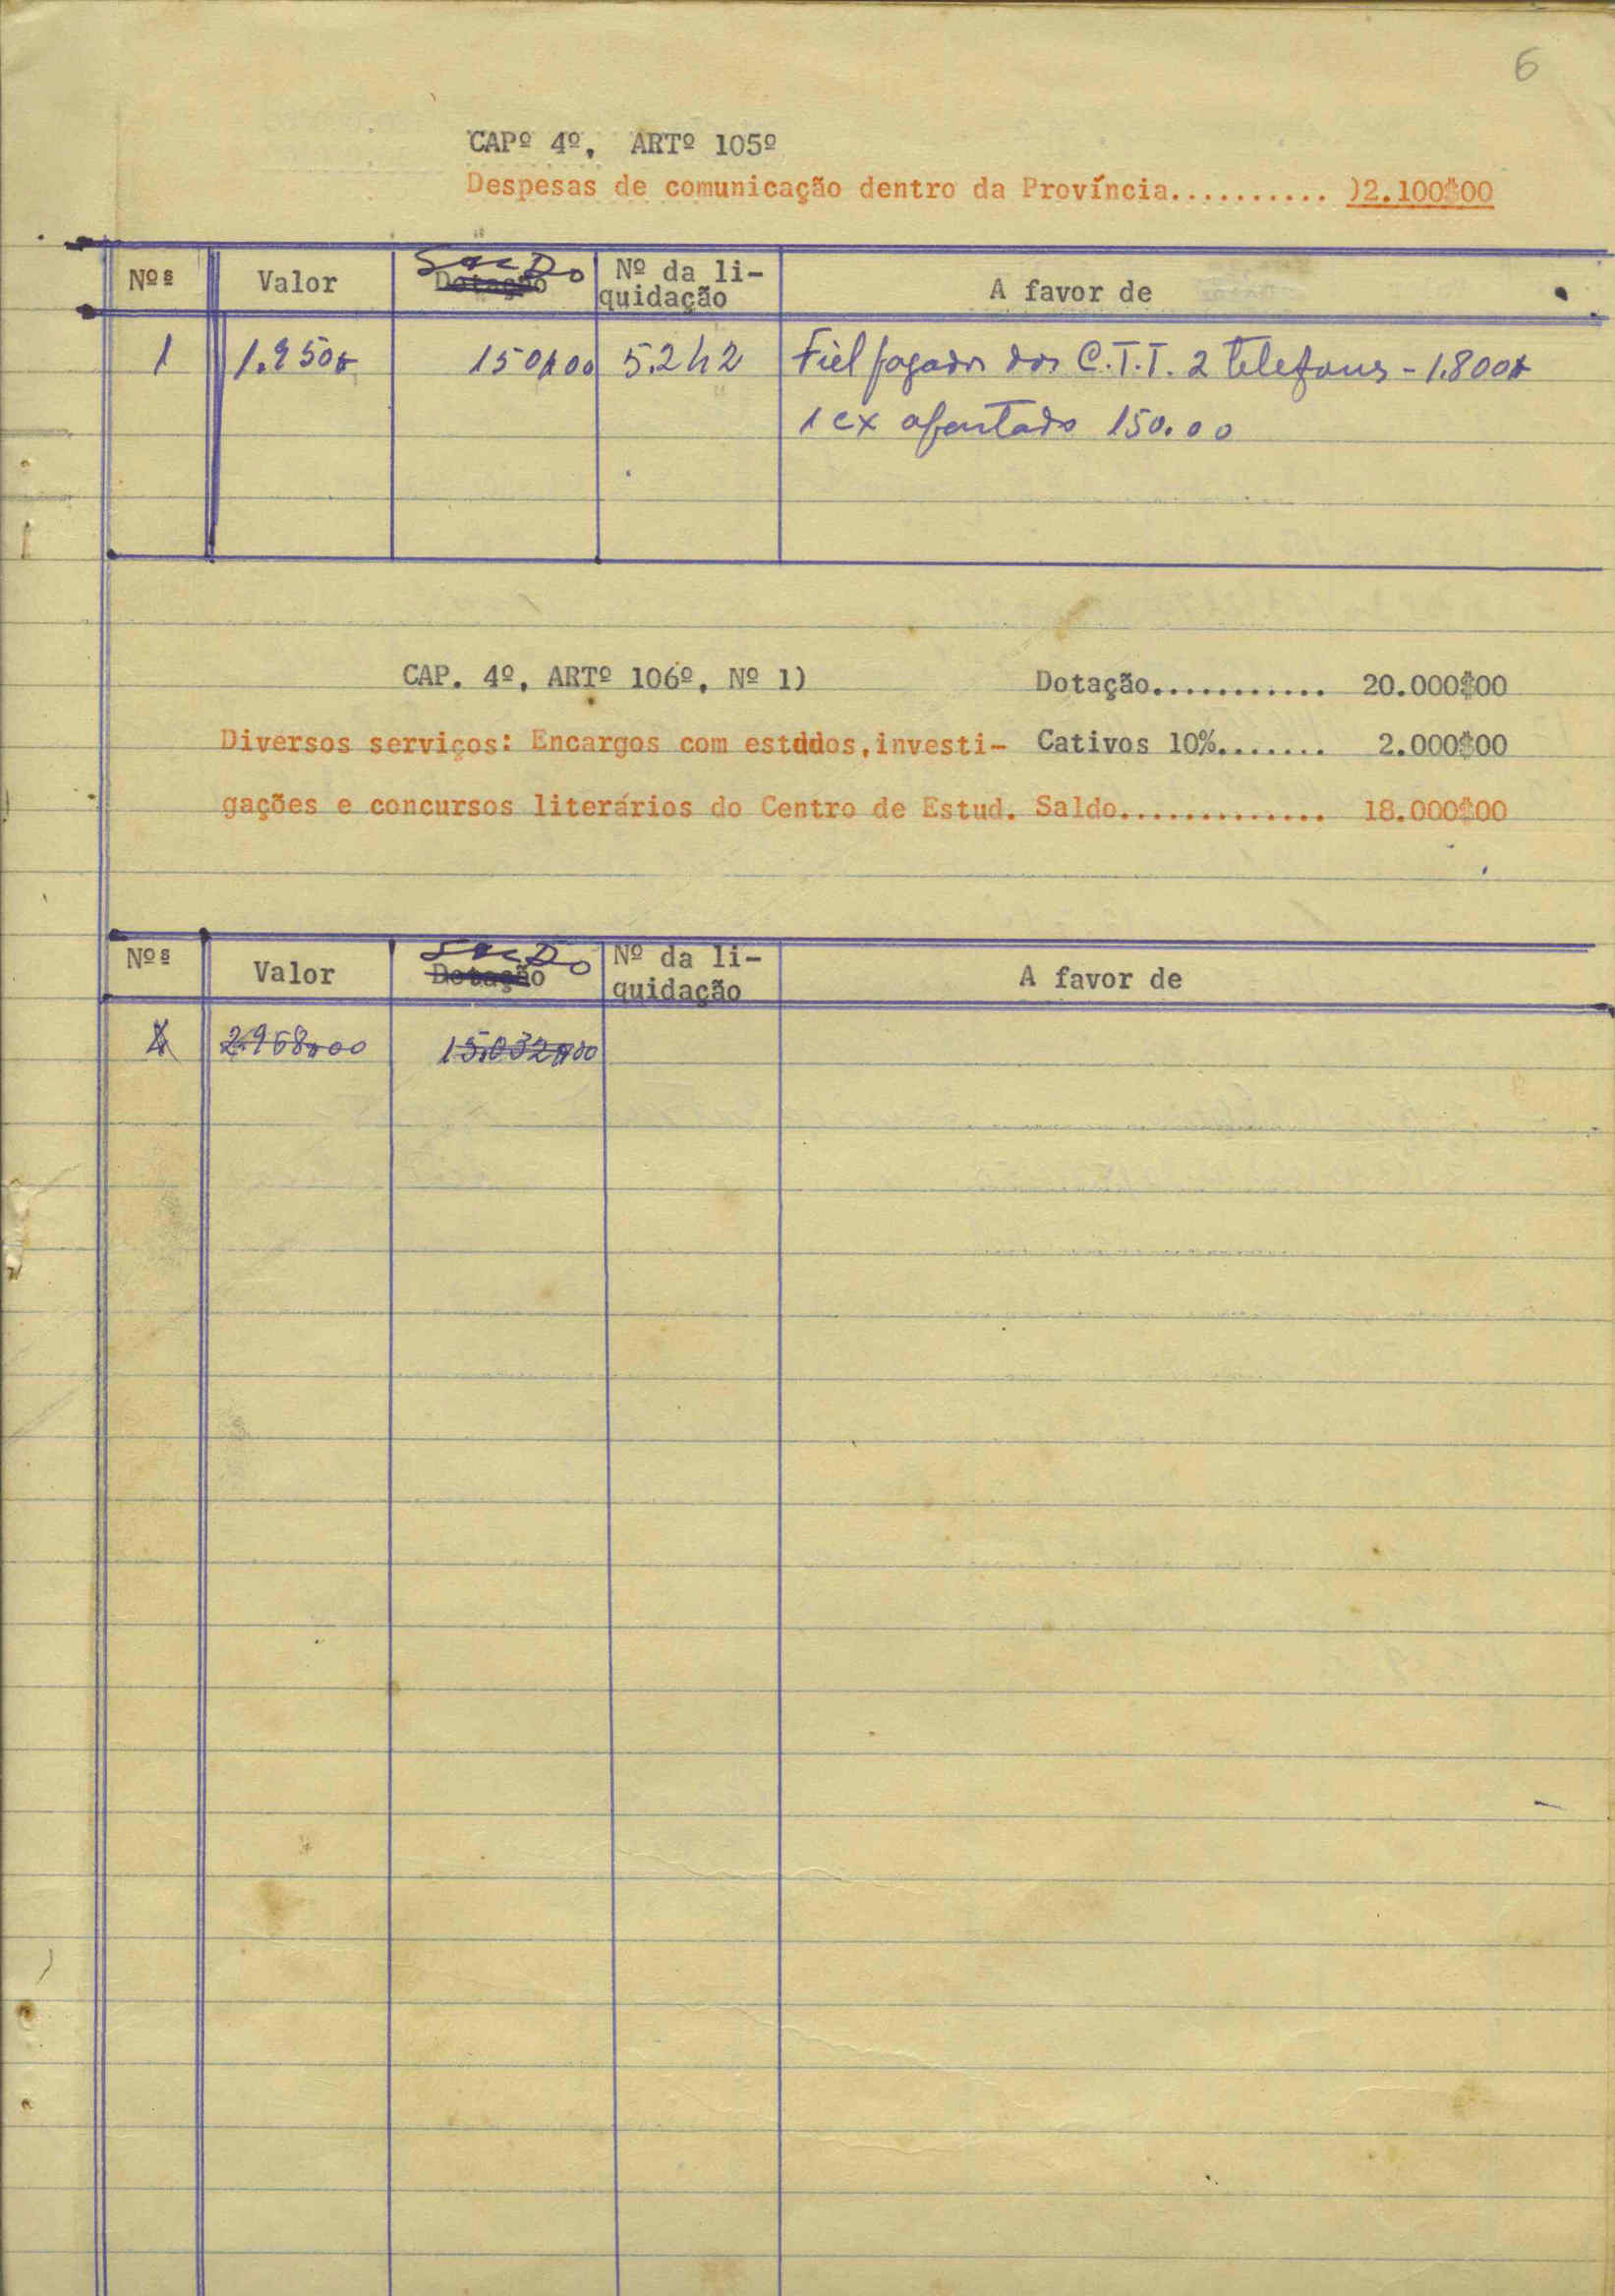 6
CAPº 4º, ARTº 105º
Despesas de comunicação dentro da Província.......... )2.100$00
Nºs Valor Dotação SALDO Nº da li-
quidação A favor de
1 1.950$ 150$00 5.242 Fiel pagador dos C.T.T. 2 telefones - 1.800$
1 cx apartado 150.00
CAP. 4º, ARTº 106º, Nº 1) Dotação........... 20.000$00
Diversos serviços: Encargos com estddos,investi- Cativos 10%....... 2.000$00
gações e concursos literários do Centro de Estud. Saldo............. 18.000$00
Nºs Valor Dotação SALDO Nº da li-
quidação A favor de
2.968$00 15.032$00